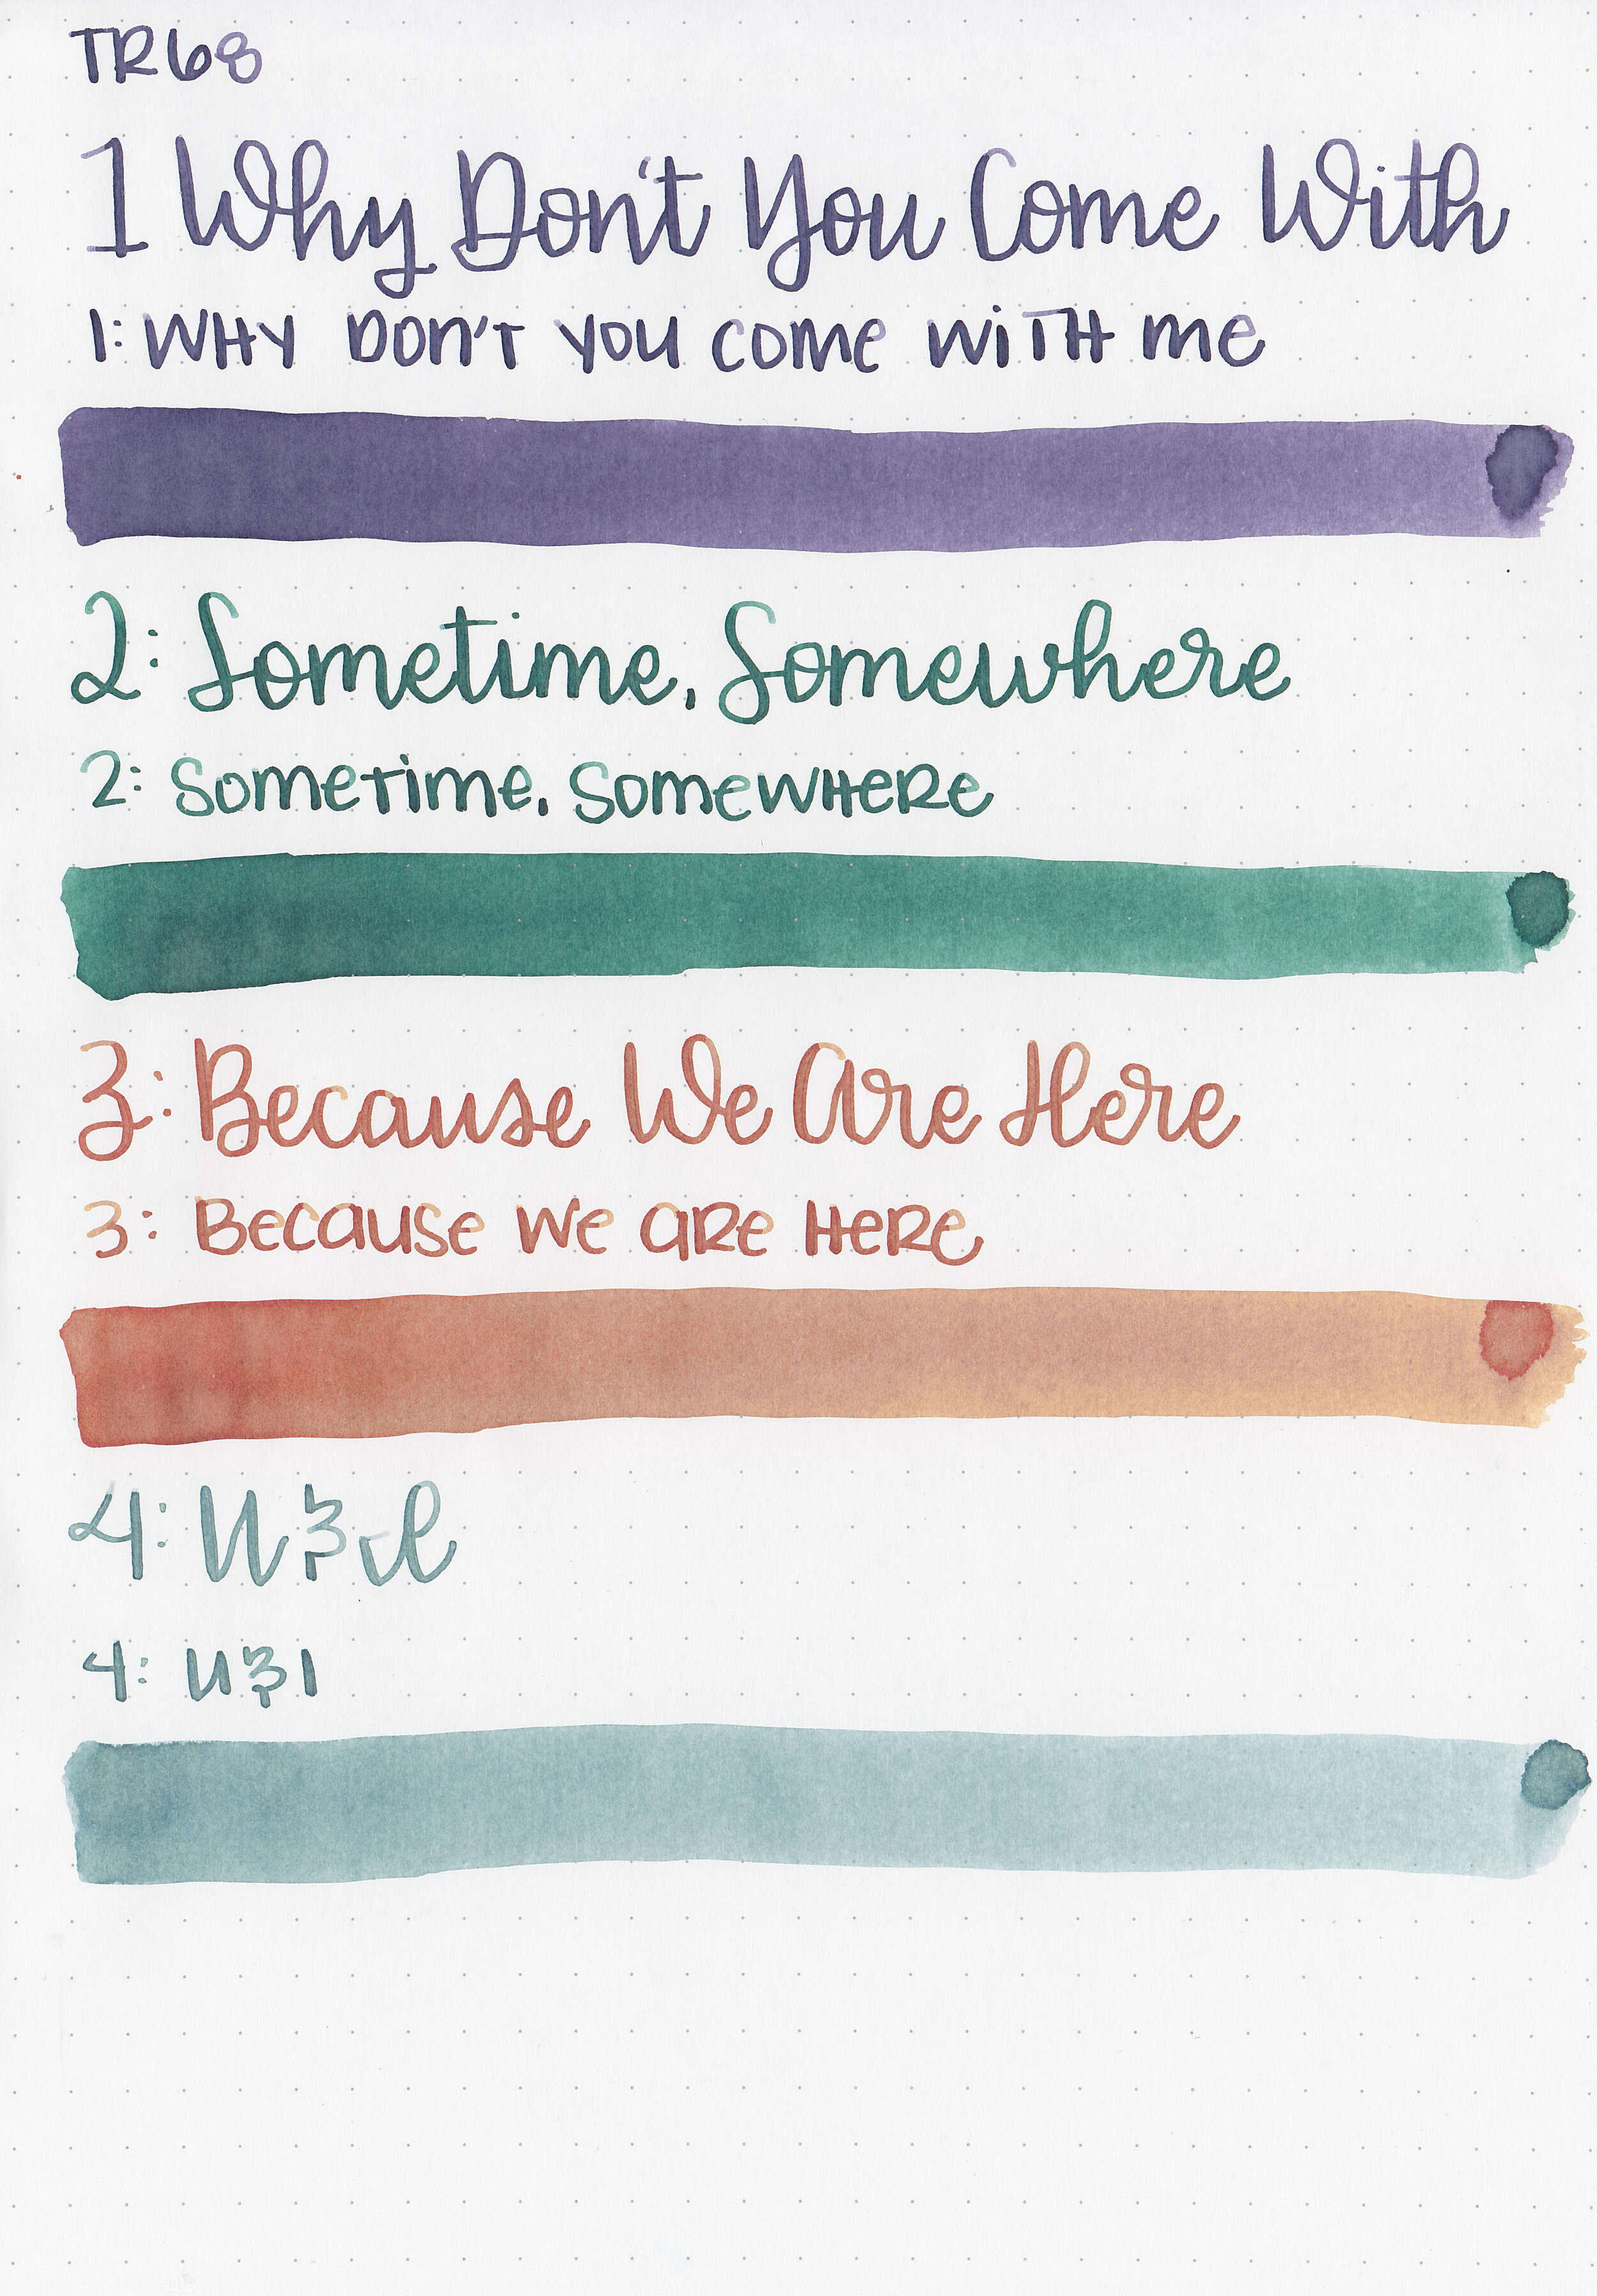 TR68
1 Why Don't You Come With
1: WHY DON'T YOU COME WITH Me
2: Sometime, Somewhere
2: Sometime, Somewhere
3: Because We Are Here
3: Because We are Here
4: U & I
4: U & I